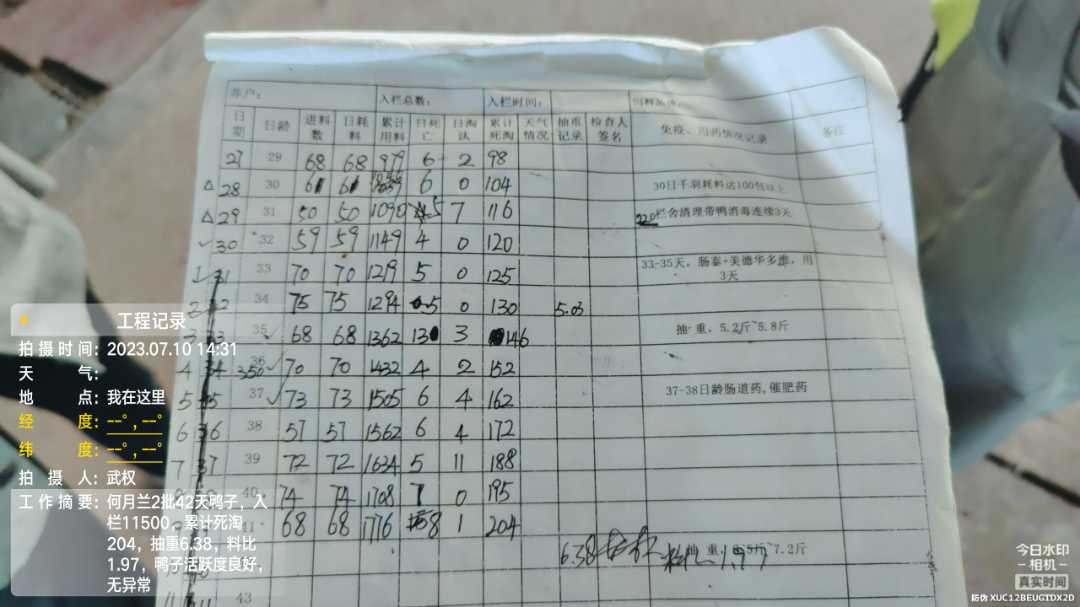 养户： 入栏总数： 入栏时间： 饲料品种：
日期 日龄 进料数 日耗料 累计用料 日死亡 日淘汰 累计死淘 天气情况 抽重记录 检查人签名 免疫、用药情况记录 备注
27 29 68 68 979 6 2 98
△ 28 30 61 61 6 0 104 30日千羽耗料达100包以上
△ 29 31 50 50 1090 5 7 116 栏舍清理带鸭消毒连续3天
✓ 30 32 59 59 1149 4 0 120
1 33 70 70 1219 5 0 125 33-35天，肠泰+美德华多维，用3天
34 75 75 1294 5 0 130 5.03
3 35 68 68 1362 13 3 146 抽 重，5.2斤~5.8斤
4 36 350 70 70 1432 4 2 152
5 37 73 73 1505 6 4 162 37-38日龄肠道药,催肥药
6 38 57 57 1562 6 4 172
7 39 72 72 1634 5 11 188
74 74 1708 7 0 195
68 68 1776 8 1 204
6.38 抽 重 7.2斤 1.97
43
工程记录
拍摄时间：2023.07.10 14:31
天 气：
地 点：我在这里
经 度：--°,--°
纬 度：--°,--°
拍 摄 人：武权
工作摘要：何月兰2批42天鸭子，入
栏11500，累计死淘
204，抽重6.38，料比
1.97，鸭子活跃度良好，
无异常
今日水印
相机
真实时间
防伪 XUC12BEUGTDX2D